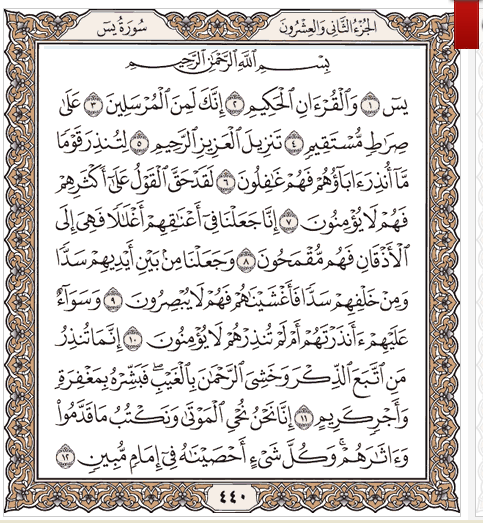 الجزء الثاني والعشرون
سورة يس
بِسْمِ اللَّهِ الرَّحْمَٰنِ الرَّحِيمِ
يسٓ ١ وَالْقُرْءَانِ الْحَكِيمِ ٢ إِنَّكَ لَمِنَ الْمُرْسَلِينَ ٣ عَلَىٰ
صِرَٰطٍ مُّسْتَقِيمٍ ٤ تَنزِيلَ الْعَزِيزِ الرَّحِيمِ ٥ لِتُنذِرَ قَوْمًا
مَّآ أُنذِرَ ءَابَآؤُهُمْ فَهُمْ غَٰفِلُونَ ٦ لَقَدْ حَقَّ الْقَوْلُ عَلَىٰٓ أَكْثَرِهِمْ
فَهُمْ لَا يُؤْمِنُونَ ٧ إِنَّا جَعَلْنَا فِىٓ أَعْنَٰقِهِمْ أَغْلَٰلًا فَهِىَ إِلَى
الْأَذْقَانِ فَهُم مُّقْمَحُونَ ٨ وَجَعَلْنَا مِنۢ بَيْنِ أَيْدِيهِمْ سَدًّا
وَمِنْ خَلْفِهِمْ سَدًّا فَأَغْشَيْنَٰهُمْ فَهُمْ لَا يُبْصِرُونَ ٩ وَسَوَآءٌ
عَلَيْهِمْ ءَأَنذَرْتَهُمْ أَمْ لَمْ تُنذِرْهُمْ لَا يُؤْمِنُونَ ١٠ إِنَّمَا تُنذِرُ
مَنِ اتَّبَعَ الذِّكْرَ وَخَشِىَ الرَّحْمَٰنَ بِالْغَيْبِ ۖ فَبَشِّرْهُ بِمَغْفِرَةٍ
وَأَجْرٍ كَرِيمٍ ١١ إِنَّا نَحْنُ نُحْىِ الْمَوْتَىٰ وَنَكْتُبُ مَا قَدَّمُوا۟
وَءَاثَٰرَهُمْ ۚ وَكُلَّ شَىْءٍ أَحْصَيْنَٰهُ فِىٓ إِمَامٍ مُّبِينٍ ١٢
٤٤٠